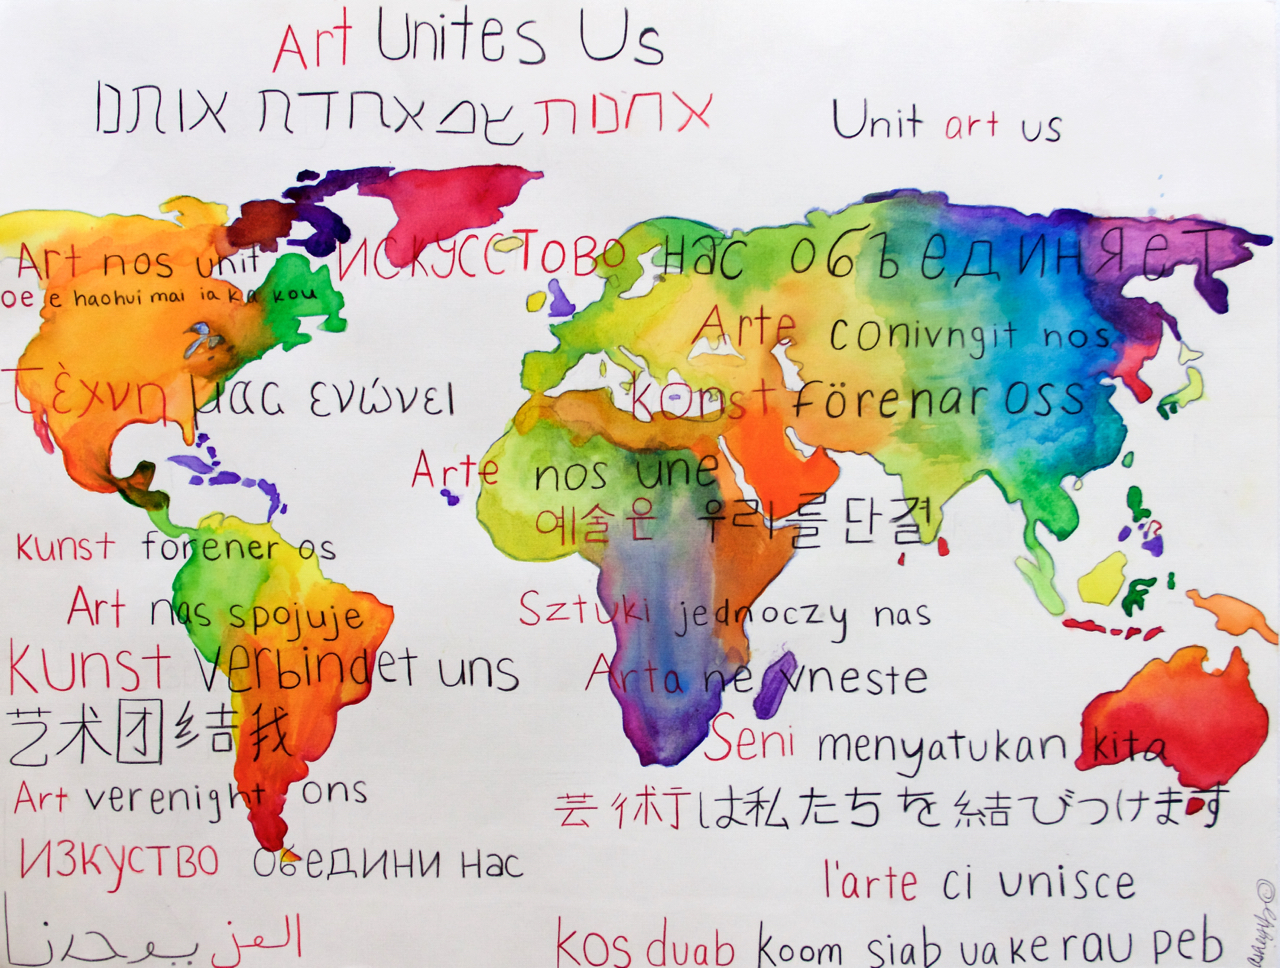 Art Unites Us
Unit art us
ИСКУССТОВО нас объединяет
Art nos unit
oe e haohui mai ia ka kou
Arte conivngit nos
τέχνη μας ενώνει
konst förenar oss
Arte nos une
예술은 우리를 단결
kunst forener os
Art nas spojuje
Sztuki jednoczy nas
Kunst verbindet uns
Arta ne vneste
艺术团结我
Seni menyatukan kita
Art verenight ons
芸術は私たちを結びつけます
ИЗКУСТВО обедини нас
l'arte ci unisce
يوحدنا
kos duab koom siab ua ke rau peb